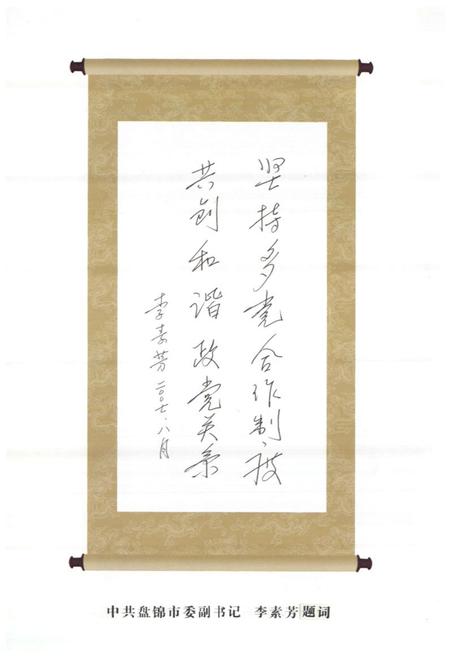 坚持多党合作制度
共创和谐政党关系
李素芳 二〇〇七.八月
中共盘锦市委副书记 李素芳题词